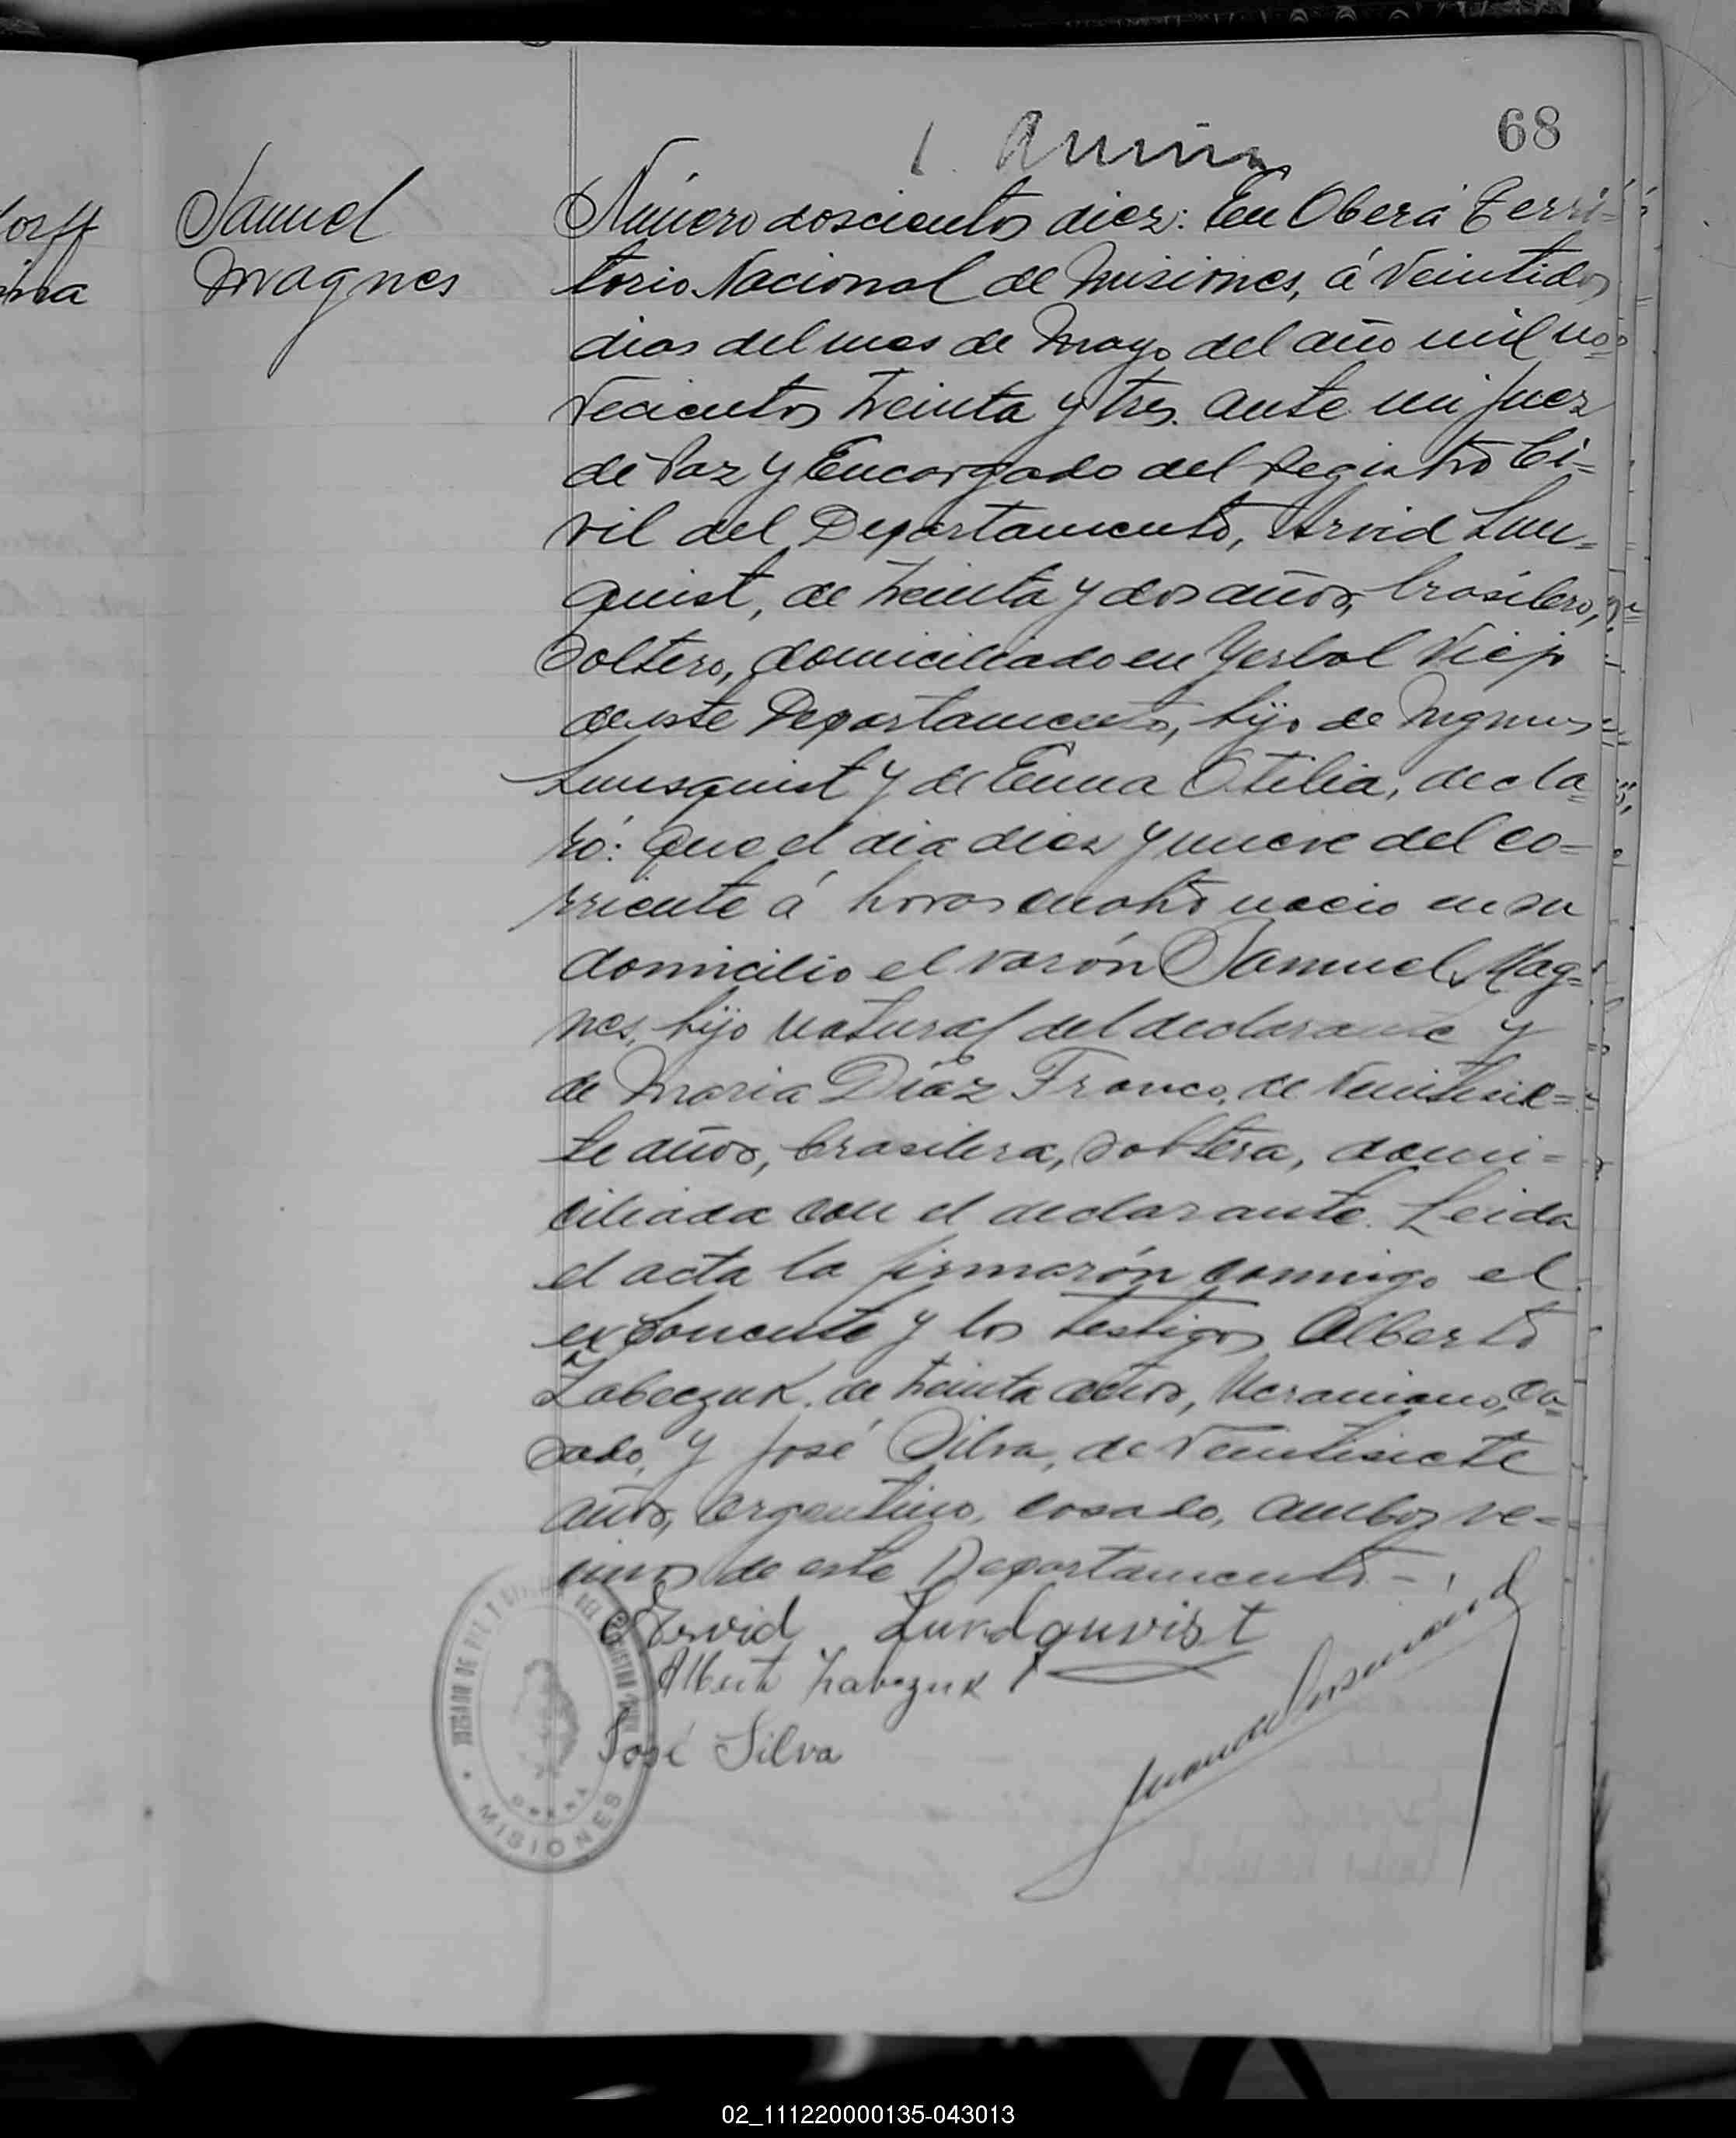 68
Samuel
Magnes
Número doscientos diez: En Oberá Terri-
torio Nacional de Misiones, á veintidos
dias del mes de Mayo del año mil no-
vecientos treinta y tres. ante mi Juez
de Paz y Encargado del Registro Ci-
vil del Departamento, Arvid Lun-
quist, de treinta y dos años, brasilero,
soltero, domiciliado en Yerbal Viejo
de este Departamento, hijo de
Lunsquist y de Emma Otilia, decla-
ró: Que el dia diez y nueve del co-
rriente á horas cuatro nació en su
domicilio el varón Samuel Mag-
nes, hijo natural del declarante y
de Maria Díaz Franco, de veintisie-
te años, brasilera, soltera, domi-
ciliada con el declarante. Leida
el acta la firmarón conmigo el
exponente y los testigos Alberto
Zabczuk, de treinta años, Ucraniano, ca-
sado, y José Silva, de veintisiete
años, argentino, casado, ambos ve-
cinos de este Departamento.-
Arvid Lundquvist
Albert Zabczuk
José Silva
JUZGADO DE PAZ DEL REGISTRO CIVIL
OBERA
MISIONES
02_111220000135-043013